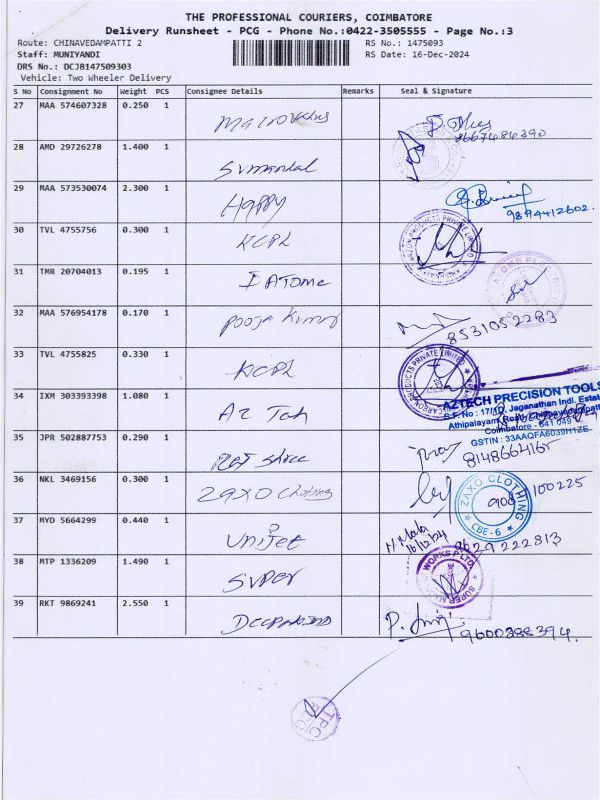 THE PROFESSIONAL COURIERS, COIMBATORE
Delivery Runsheet - PCG - Phone No.:0422-3505555 - Page No.:3
Route: CHINAVEDAMPATTI 2 RS No.: 1475093
Staff: MUNIYANDI RS Date: 16-Dec-2024
DRS No.: DCJB147509303
Vehicle: Two Wheeler Delivery
S No Consignment No Weight PCS Consignee Details Remarks Seal & Signature
27 MAA 574607328 0.250 1
8667484390
28 AMD 29726278 1.400 1
29 MAA 573530074 2.300 1 Happy
9894412602.
30 TVL 4755756 0.300 1 KCPL
31 TMR 20704013 0.195 1 IATOME
32 MAA 576954178 0.170 1 Pooja Kumar
8531052283
33 TVL 4755825 0.330 1 KCPL
34 IXM 303393398 1.080 1 AZ Teh
AZTECH PRECISION TOOLS
S.F. No : 17/1D, Jaganathan Indl. Estate
Coimbatore - 641 049
GSTIN : 33AAQFA6039H1ZE
35 JPR 502887753 0.290 1
8148664165
36 NKL 3469156 0.300 1 ZAXO Clothing
100225
ZAXO CLOTHING
CBE-6
37 MYD 5664299 0.440 1 Unijet
N Mala
16/12/24
9629222813
38 MTP 1336209 1.490 1 SUPER
WORKS P LTD
39 RKT 9869241 2.550 1
9600388394.
TPC